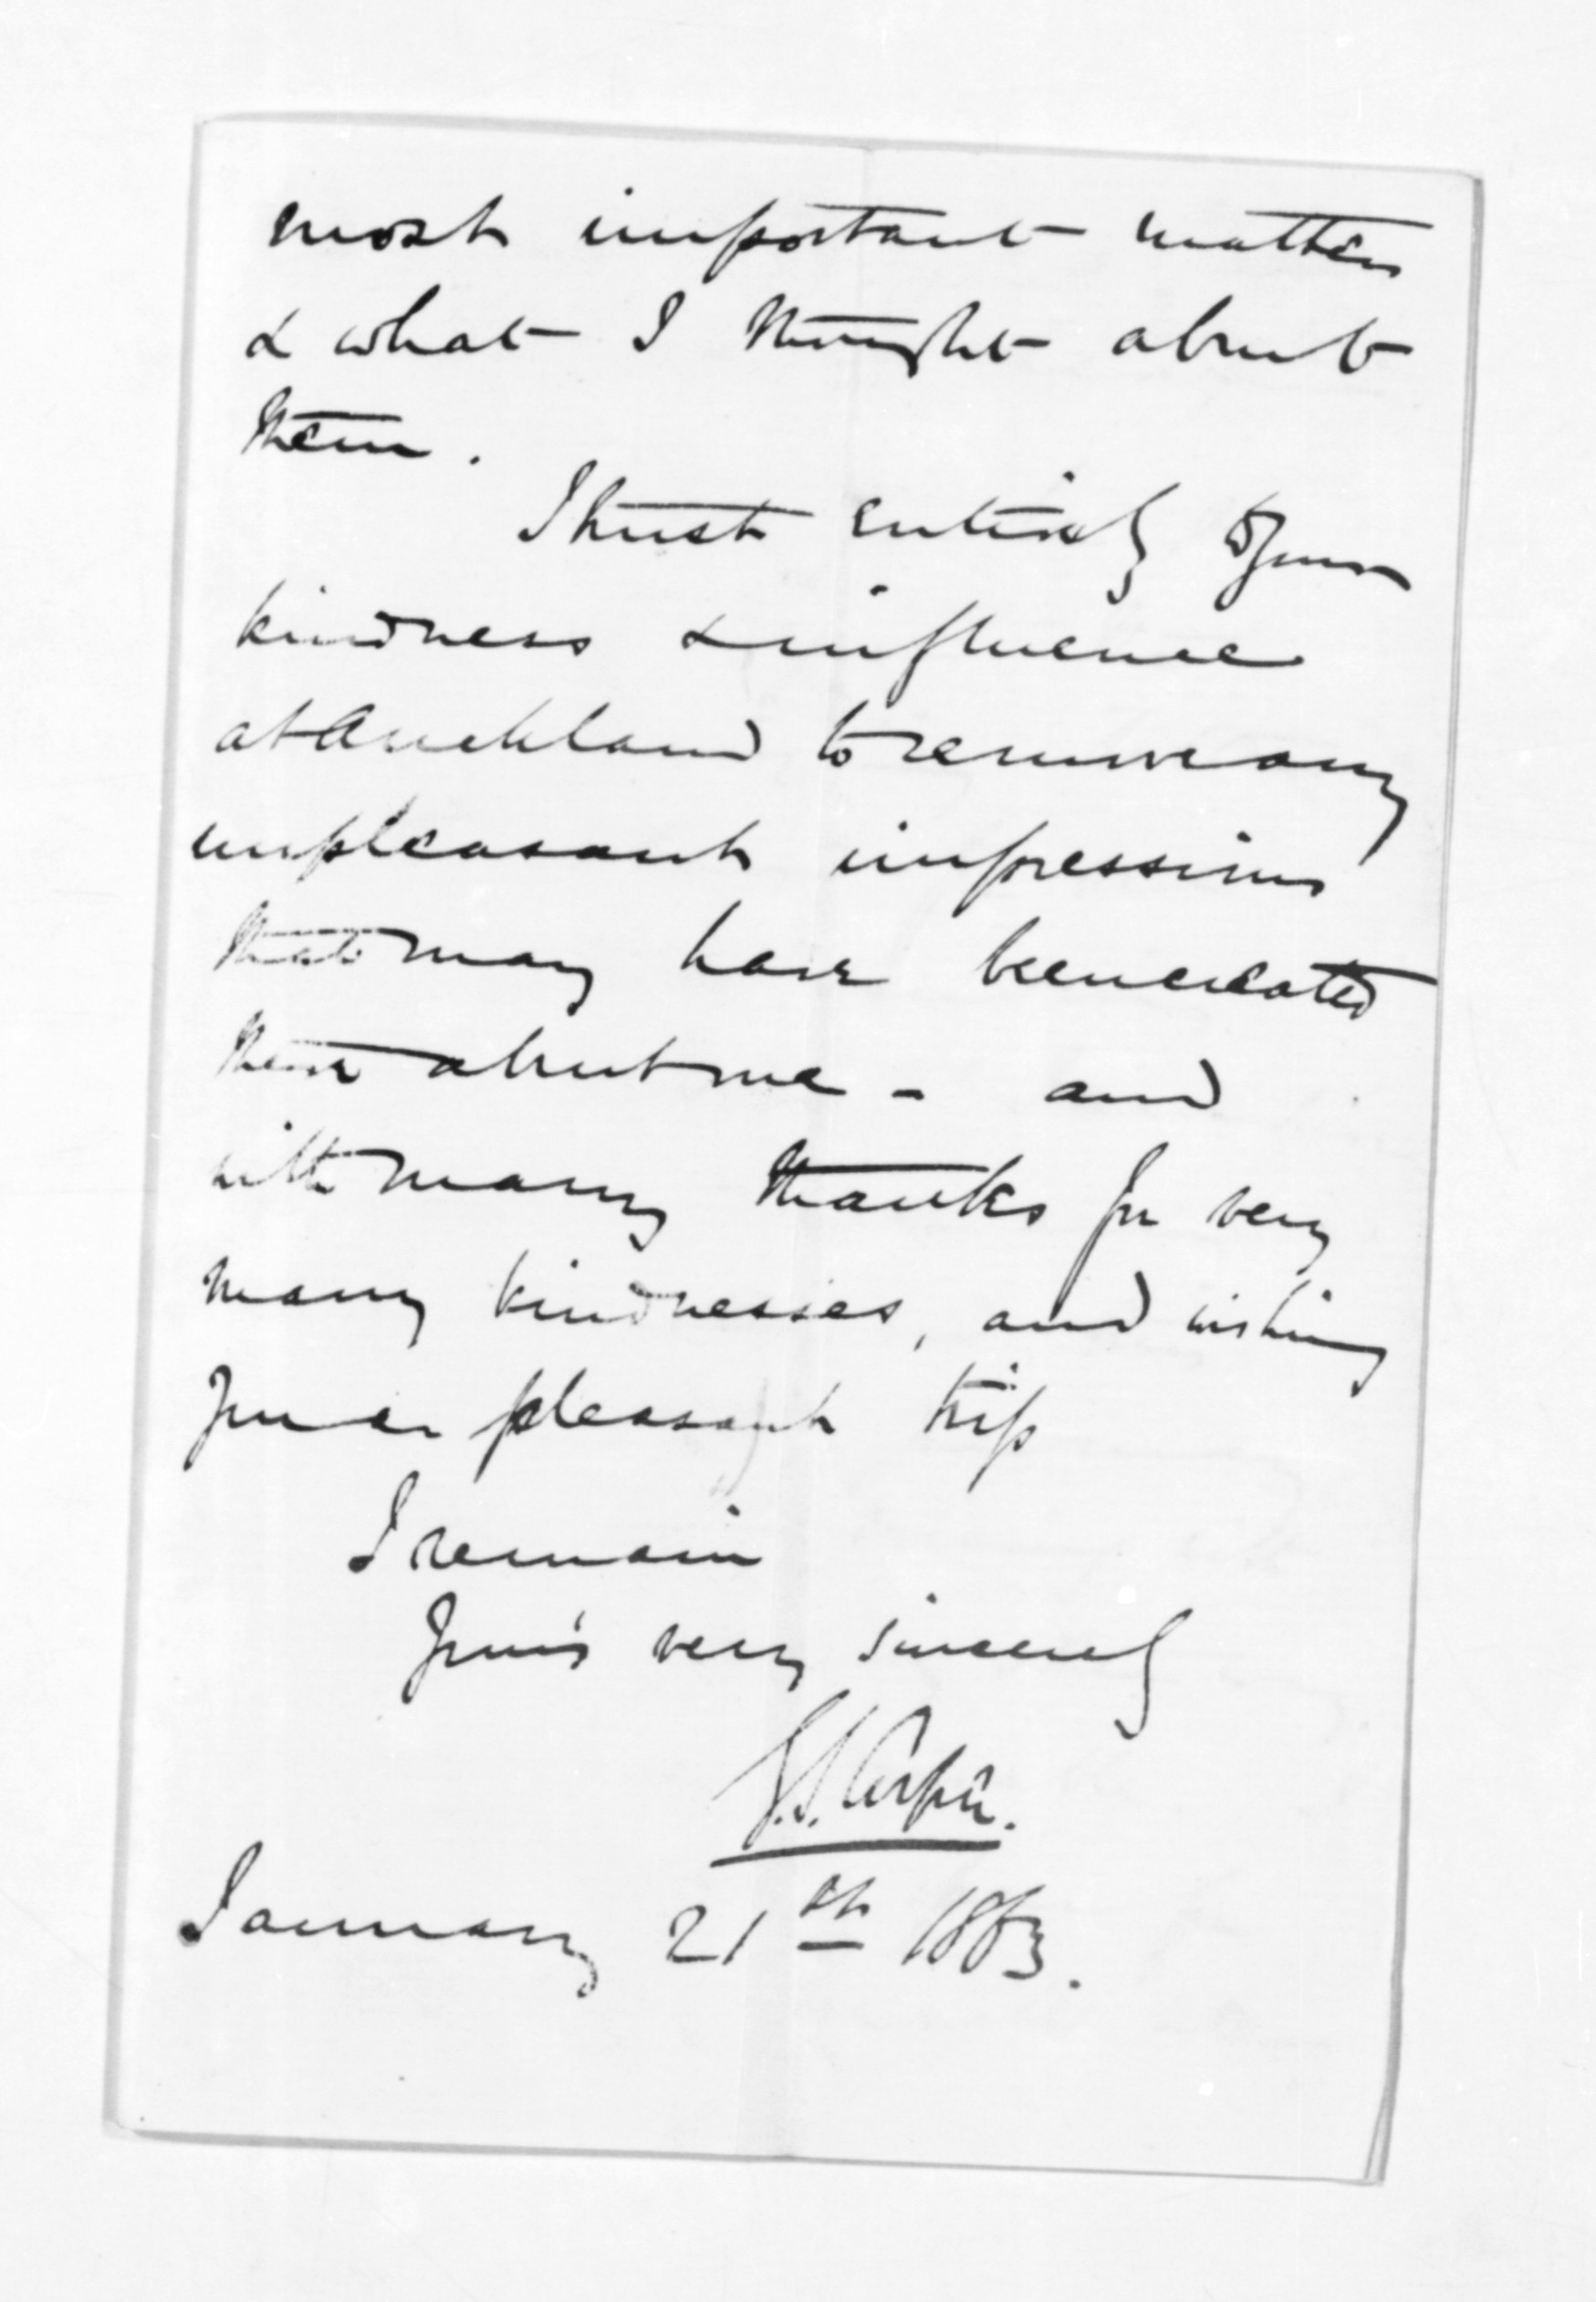 most important matters
& what I thought about
them.
I trust entirely to your
kindness & influence
at Auckland to remove any
unpleasant impressions
that may have been created
there about me - and
with many thanks for very
many kindnesses, and wishing
you a pleasant trip
I remain
Yours very sincerely
G.S. Cooper.
January 21th 1863.